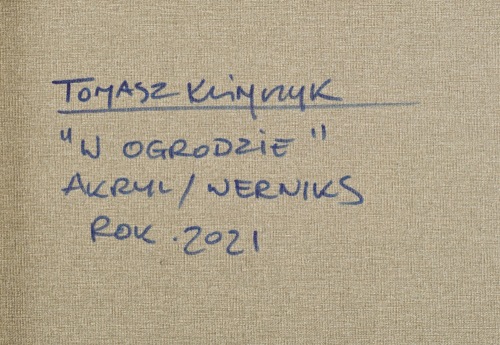 TOMASZ KLIMCZYK
"W OGRODZIE"
AKRYL/WERNIKS
ROK.2021